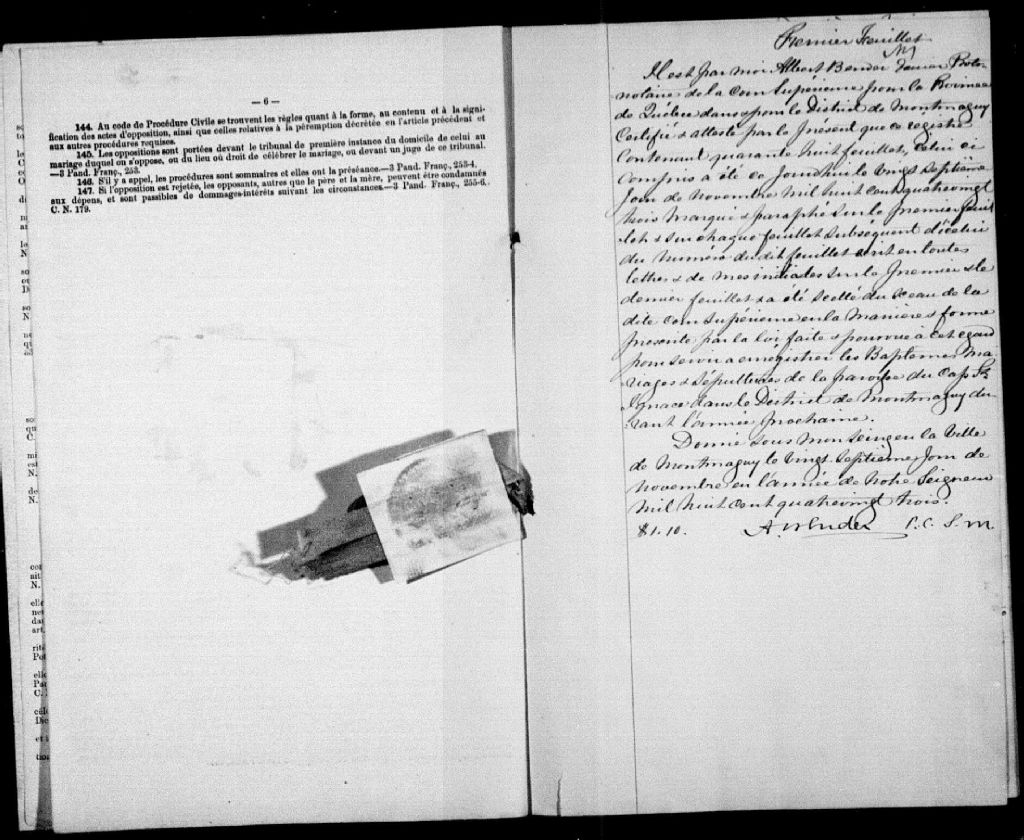 — 6 —
144. Au code de Procédure Civile se trouvent les règles quant à la forme, au contenu et à la signi-
fication des actes d'opposition, ainsi que celles relatives à la péremption décrétée en l'article précédent et
aux autres procédures requises.
145. Les oppositions sont portées devant le tribunal de première instance du domicile de celui au
mariage duquel on s'oppose, ou du lieu où droit de célébrer le mariage, ou devant un juge de ce tribunal.
—3 Pand. Franç., 253.
146. S'il y a appel, les procédures sont sommaires et elles ont la préséance.—3 Pand. Franç., 253-4.
147. Si l'opposition est rejetée, les opposants, autres que le père et la mère, peuvent être condamnés
aux dépens, et sont passibles de dommages-intérêts suivant les circonstances.—3 Pand. Franç., 255-6.
C. N. 179.
Premier Feuillet
Il est par moi Albert Bender Proto-
notaire de la Cour Supérieure pour la Province
de Québec dans & pour le District de Montmagny
Certifié & attesté par le présent que ce registre
Contenant quarante huit feuillets, celui ci
Compris a été ce Jourd'hui le vingt septième
Jour de Novembre Mil huit cent quatrevingt
trois Marqué & paraphé sur le premier feuil
let & sur chaque feuillet subséquent d'icelui
du Numéro du dit feuillet écrit en toutes
lettres & de mes initiales sur le premier & le
dernier feuillet & a été scellé du Sceau de la
dite Cour Supérieure en la Manière & forme
prescrite par la loi faite & pourvue à cet égard
pour servir à enregistrer les Baptêmes Ma
riages & Sépultures de la paroisse du Cap St
Ignace dans le District de Montmagny du
rant l'année prochaine.
Donné sous mon seing en la Ville
de Montmagny le vingt-septième jour de
Novembre en l'année de Notre Seigneur
Mil huit cent quatrevingt trois.
$1.10. A. Bender P. C. S. M.